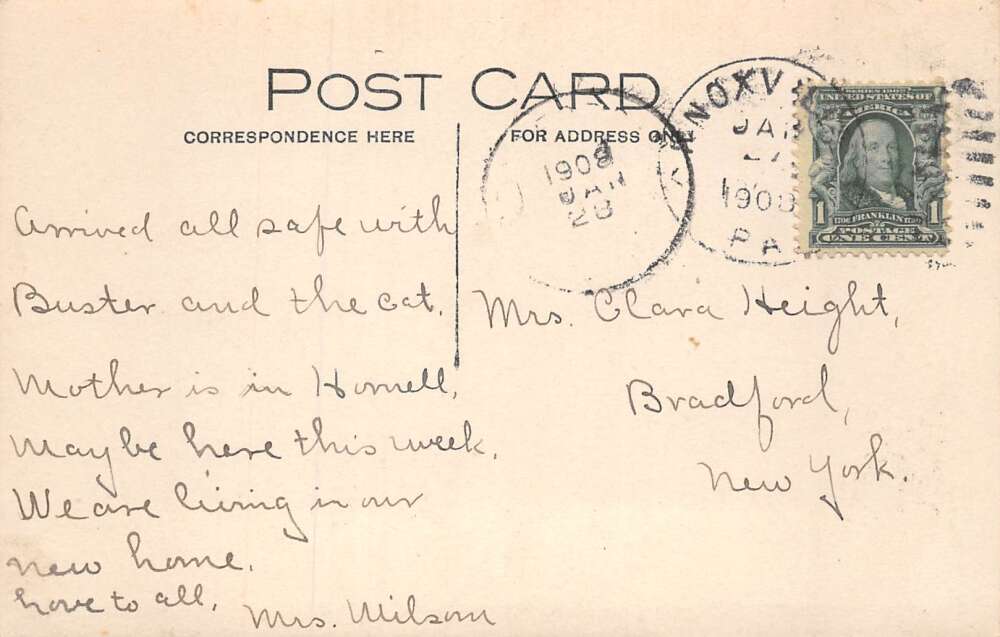 POST CARD
CORRESPONDENCE HERE
FOR ADDRESS ONLY
1908
JAN
28
KNOXVILLE
JAN
27
1908
PA
SERIES 1902
UNITED STATES OF
AMERICA
1706 FRANKLIN 1790
1 1
POSTAGE
ONE CENT
Arrived all safe with
Buster and the cat.
Mother is in Hornell,
Maybe here this week.
We are living in our
new home.
Love to all,
Mrs. Wilson
Mrs. Clara Height,
Bradford,
New York.